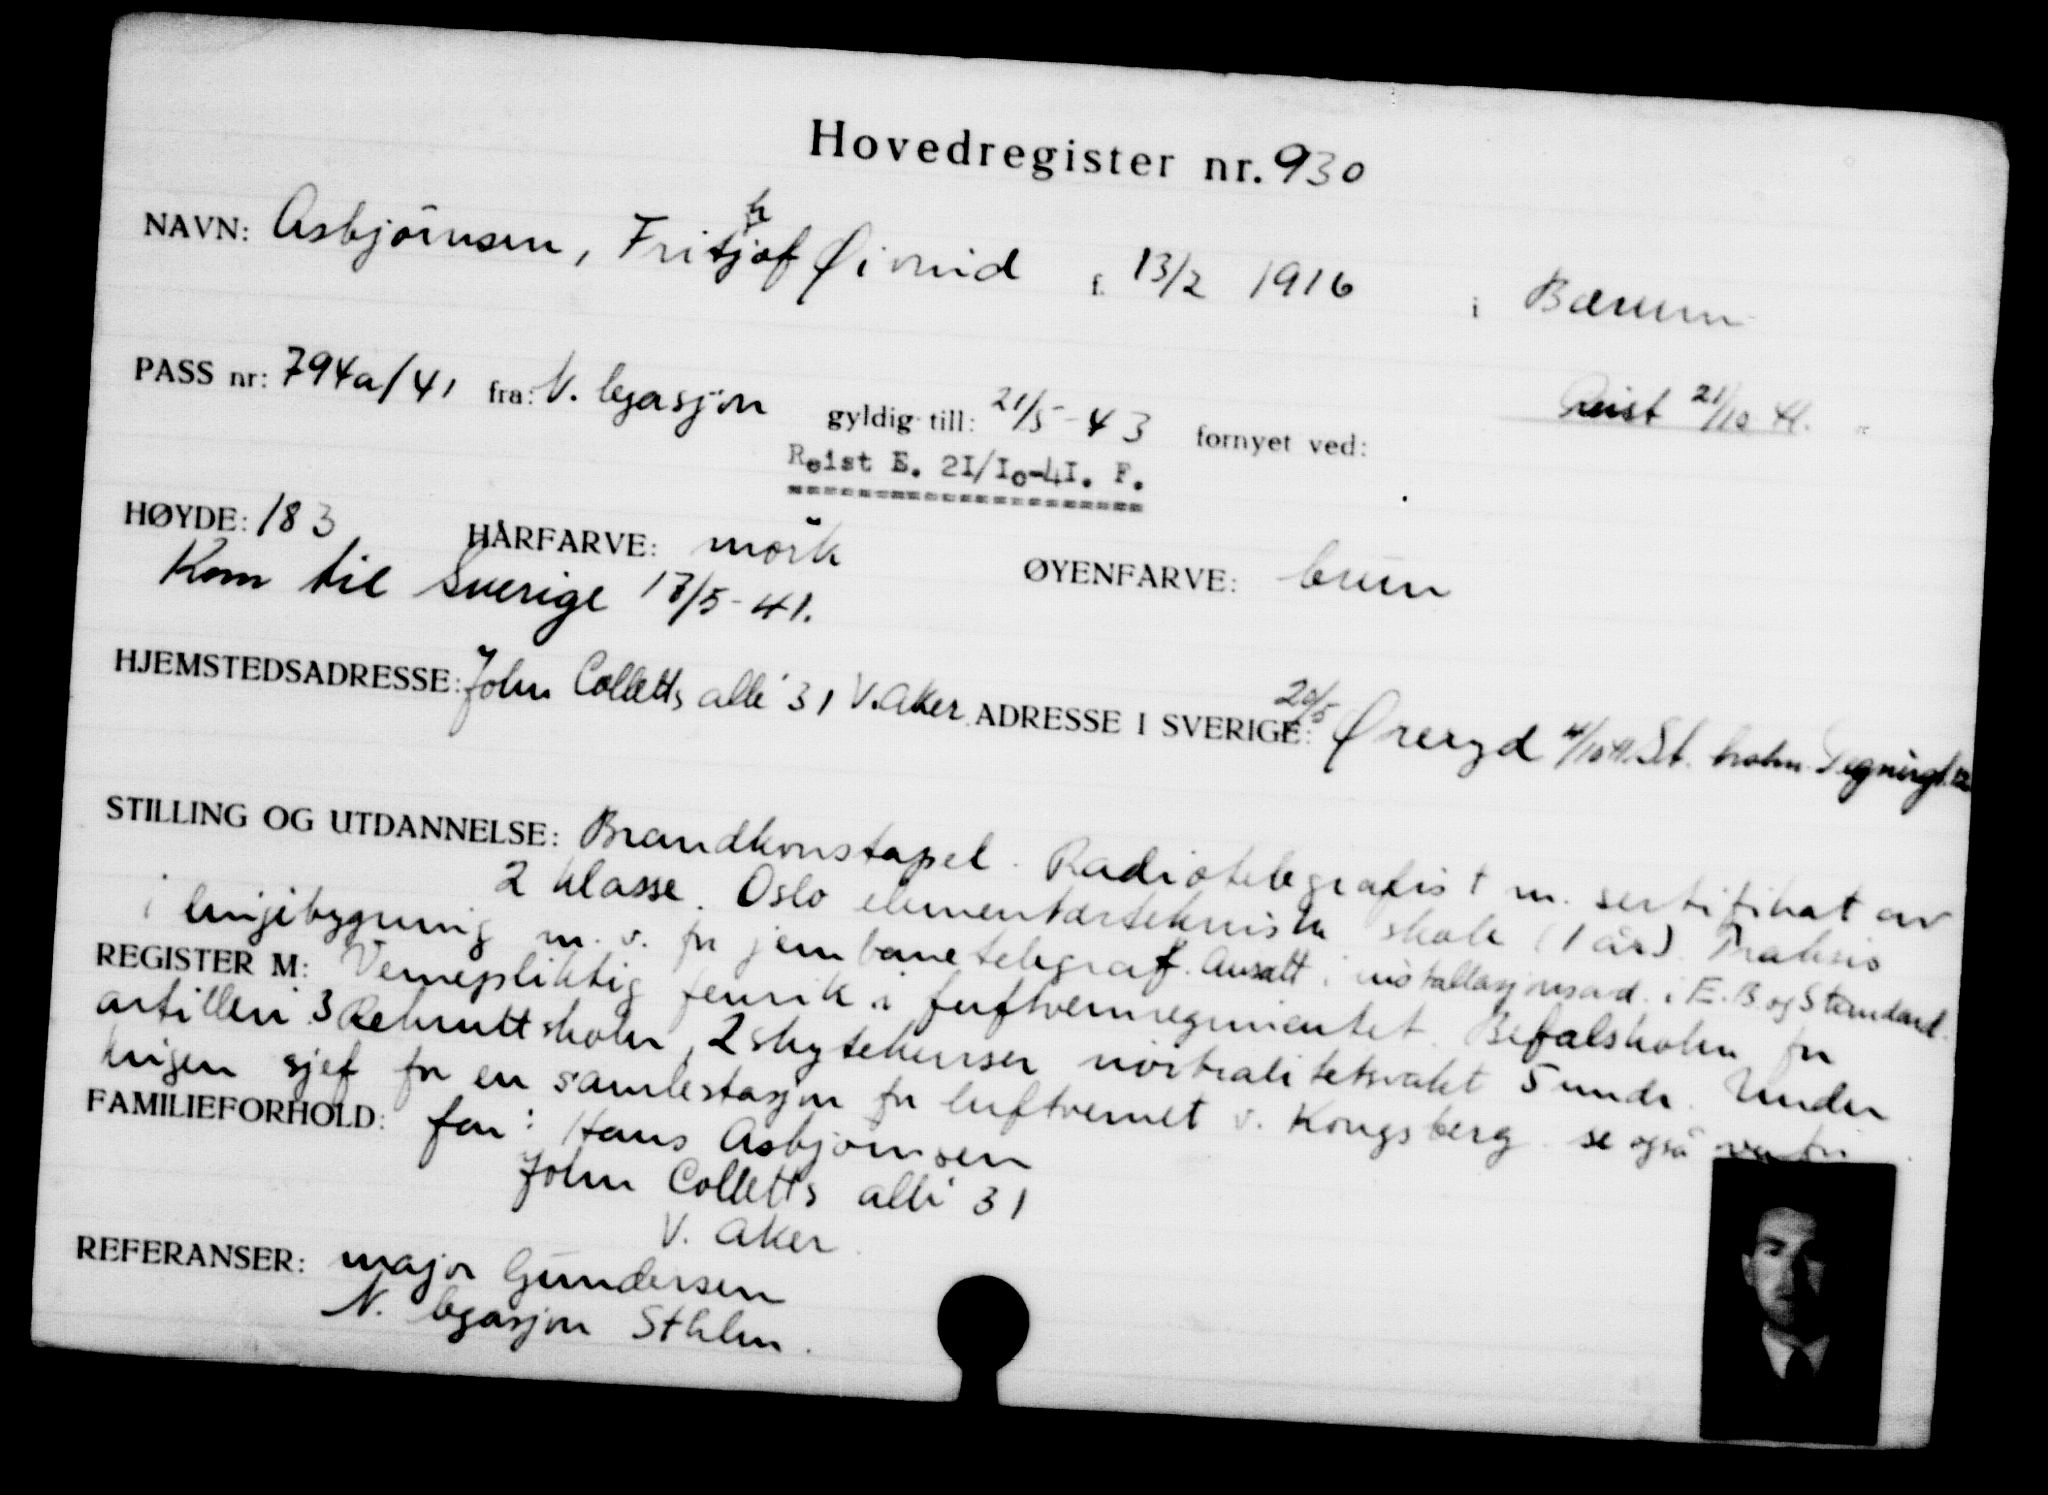 Hovedregister nr. 930
NAVN: Asbjörnsen, Frithjof Øivind f. 13/2 1916 i Bærum
PASS nr: 794a/41 fra: N. legasjon gyldig till: 21/5-43 fornyet ved: Reist 21/10 41.
Reist E. 2I/Io-4I. F.
HØYDE: 183 HÅRFARVE: mörk ØYENFARVE: brun
Kom til Sverige 18/5-41.
HJEMSTEDSADRESSE: John Colletts allé 31 V. Aker ADRESSE I SVERIGE: 20/5 Øreryd 4/10 41. St. holm
STILLING OG UTDANNELSE: Brandkonstapel. Radiotelegrafist m. sertifikat av
2 klasse. Oslo elementærtekniske skole (1 år). Praksis
i linjebygning m. v. for jernbanetelegraf. Ansatt i installasjonsavd. i E.B. og Standard.
REGISTER M: Vernepliktig fenrik i luftvernregimentet. Befalskolen for
artilleri. 3 Rekruttskoler, 2 skytekurser nöitralitetsvakt 5 mndr. Under
krigen sjef for en samlestasjon for luftvernet v. Kongsberg. se også
FAMILIEFORHOLD: far: Hans Asbjörnsen
John Colletts allé 31
V. Aker
REFERANSER: major Gundersen
N. legasjon Sthlm.